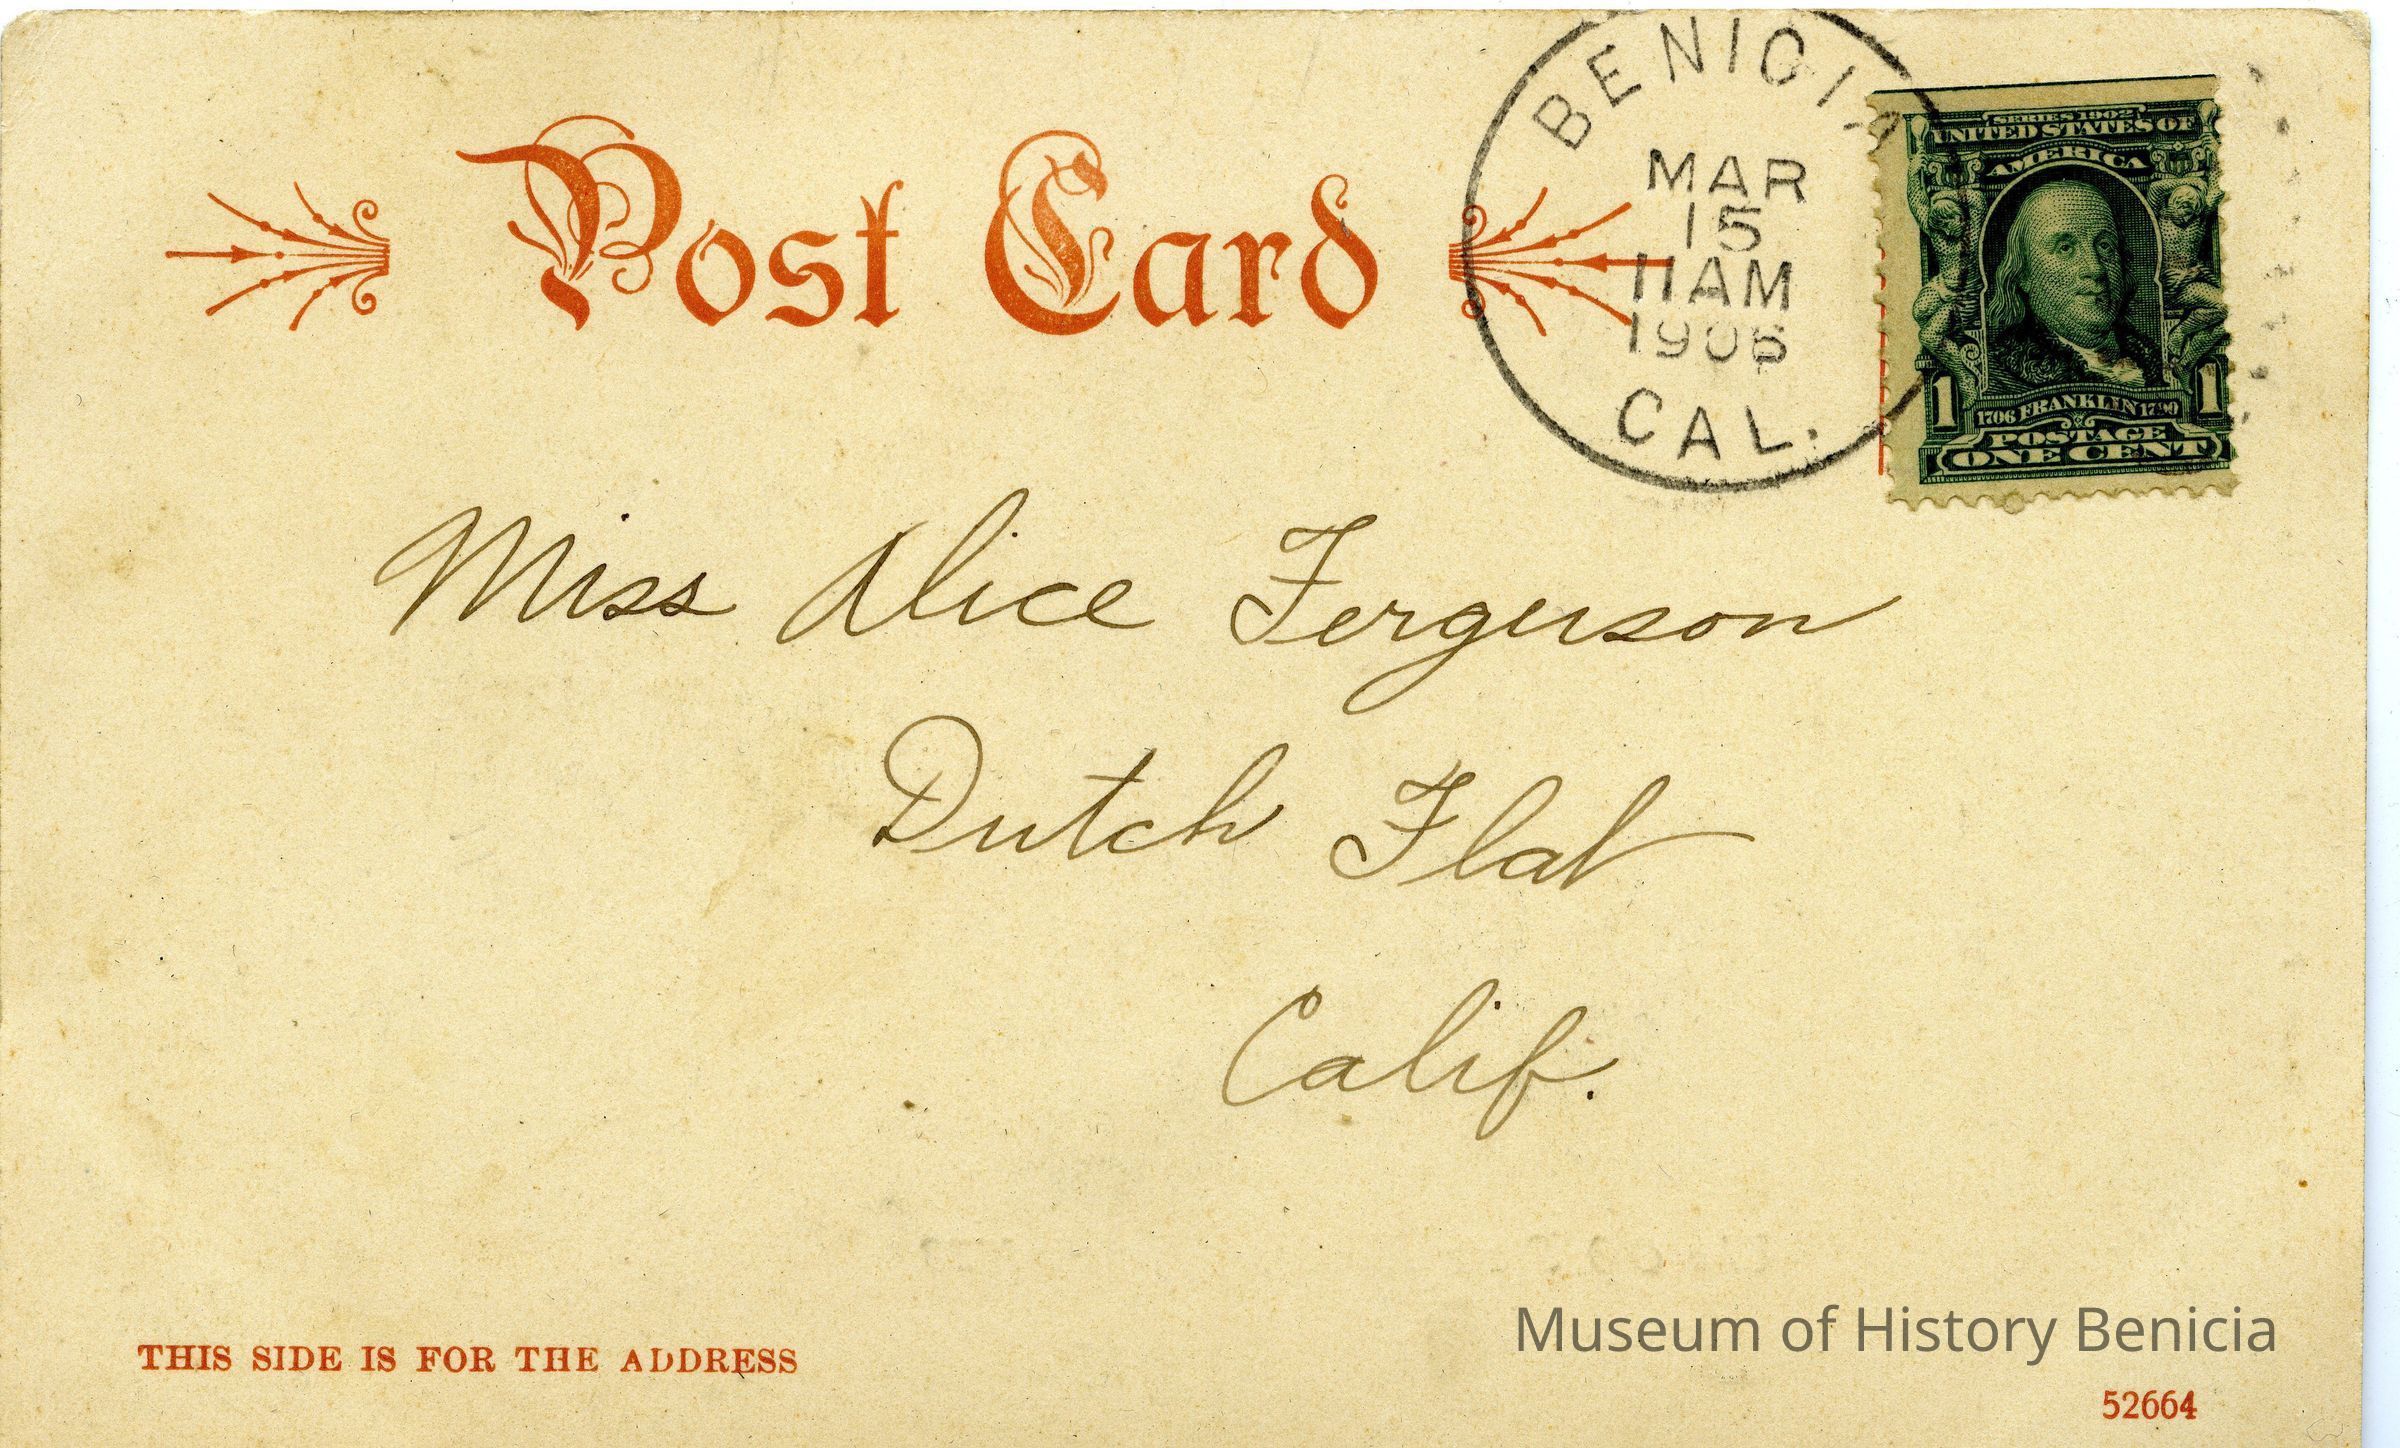 Post Card
BENICIA
MAR
15
11AM
1906
CAL.
SERIES 1902
UNITED STATES OF
AMERICA
1 1706 FRANKLIN 1790 1
POSTAGE
ONE CENT
Miss Alice Ferguson
Dutch Flat
Calif.
THIS SIDE IS FOR THE ADDRESS
Museum of History Benicia
52664